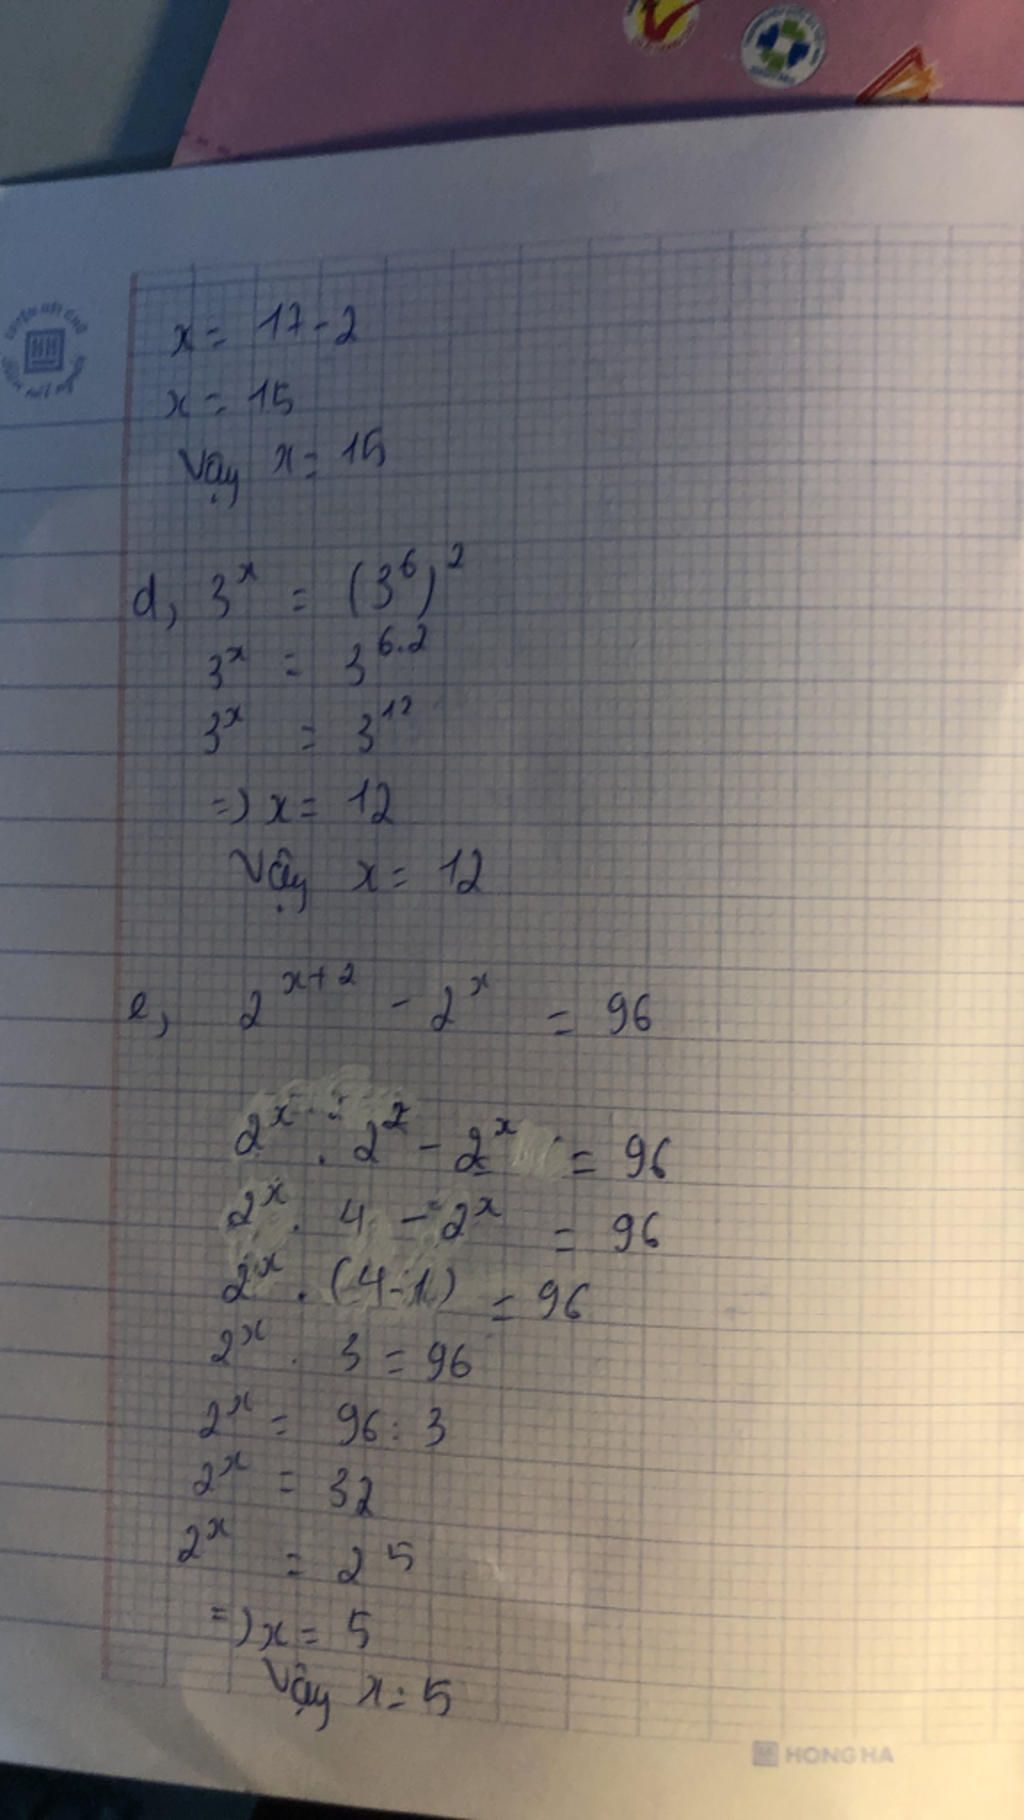 x = 17 - 2
x = 15
Vậy x = 15
d, 3^x = (3^6)^2
3^x = 3^6.2
3^x = 3^12
=) x = 12
Vậy x = 12
e, 2^x+2 - 2^x = 96
2^x . 2^2 - 2^x = 96
2^x . 4 - 2^x = 96
2^x . (4-1) = 96
2^x . 3 = 96
2^x = 96 : 3
2^x = 32
2^x = 2^5
=) x = 5
Vậy x = 5
HONG HA